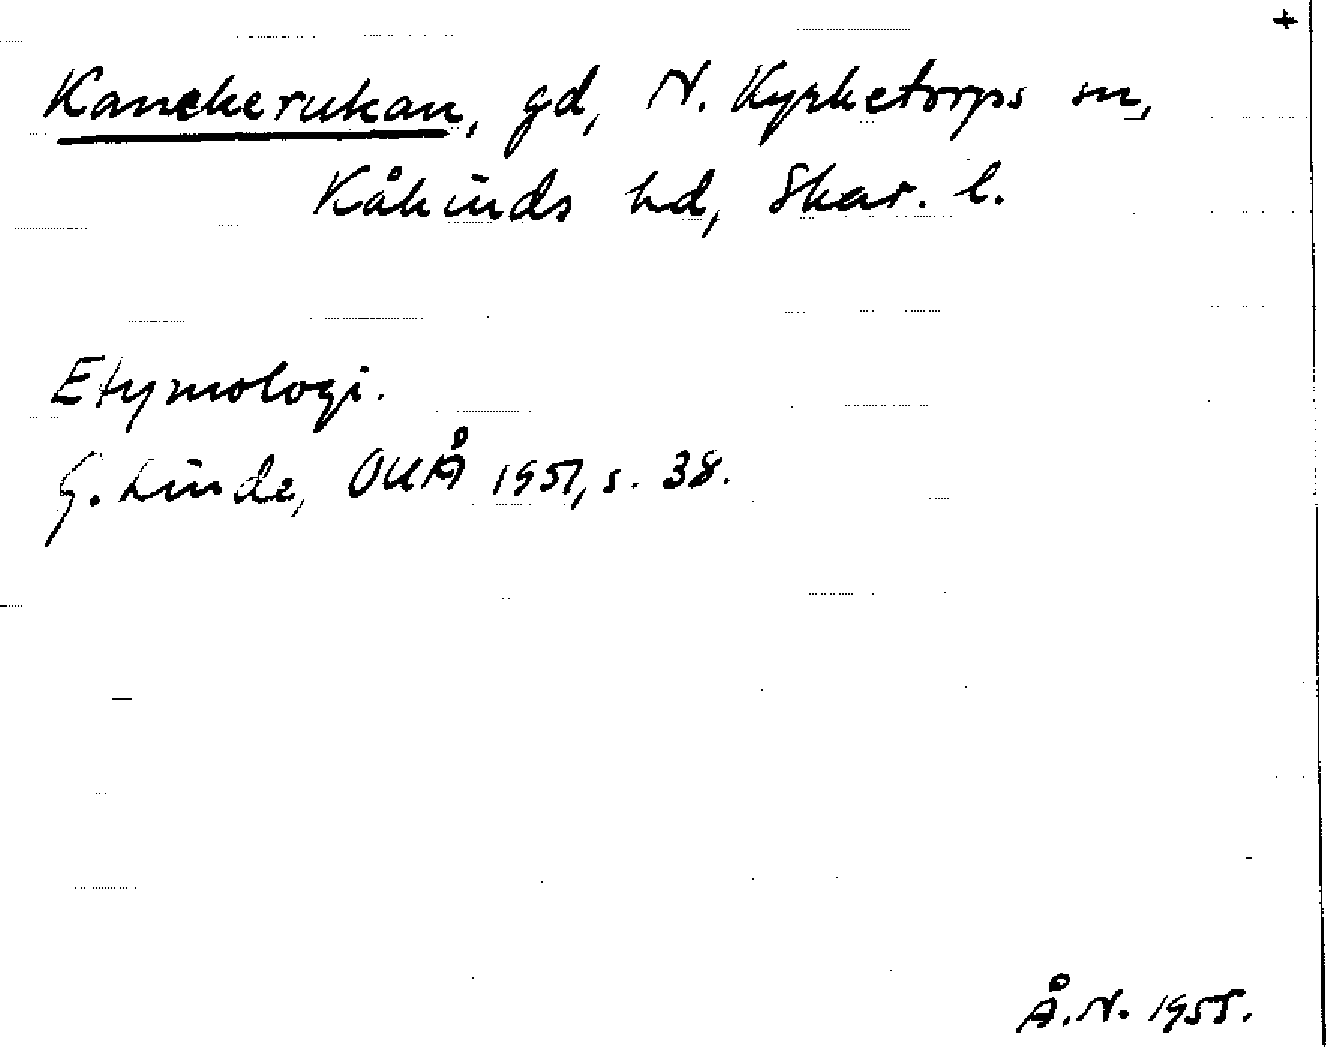 +
Kanekerukan, gd, N. Kyrketorps sn,
Kåkinds hd, Skar. l.
Etymologi.
G. Linde, OUÅ 1951, s. 38.
Å.N. 1955.